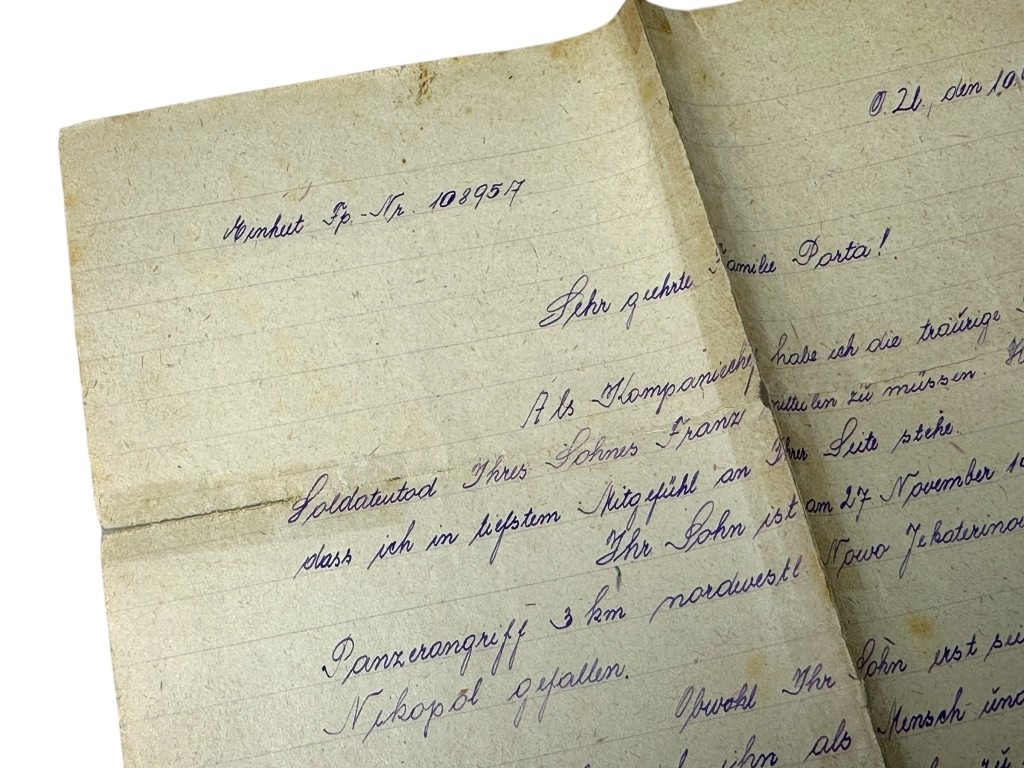 O.U., den 10.
Einheit Fp.-Nr. 10895 A
Sehr geehrte Familie Porta!
Als Kompaniechef habe ich die traurige
Soldatentod Ihres Sohnes Franz mitteilen zu müssen.
dass ich in tiefstem Mitgefühl an Ihrer Seite stehe.
Ihr Sohn ist am 27 November
Panzerangriff 3 km nordwestl Nowo Jekaterino
Nikopol gefallen.
Obwohl Ihr Sohn erst sei
ihn als Mensch und
zu